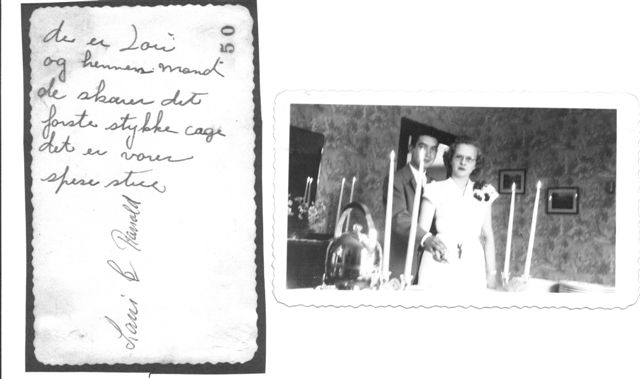 de er Lori
og hennes mand
de skarer det
forste stykke cage
det er vores
spise stue
50
Harold